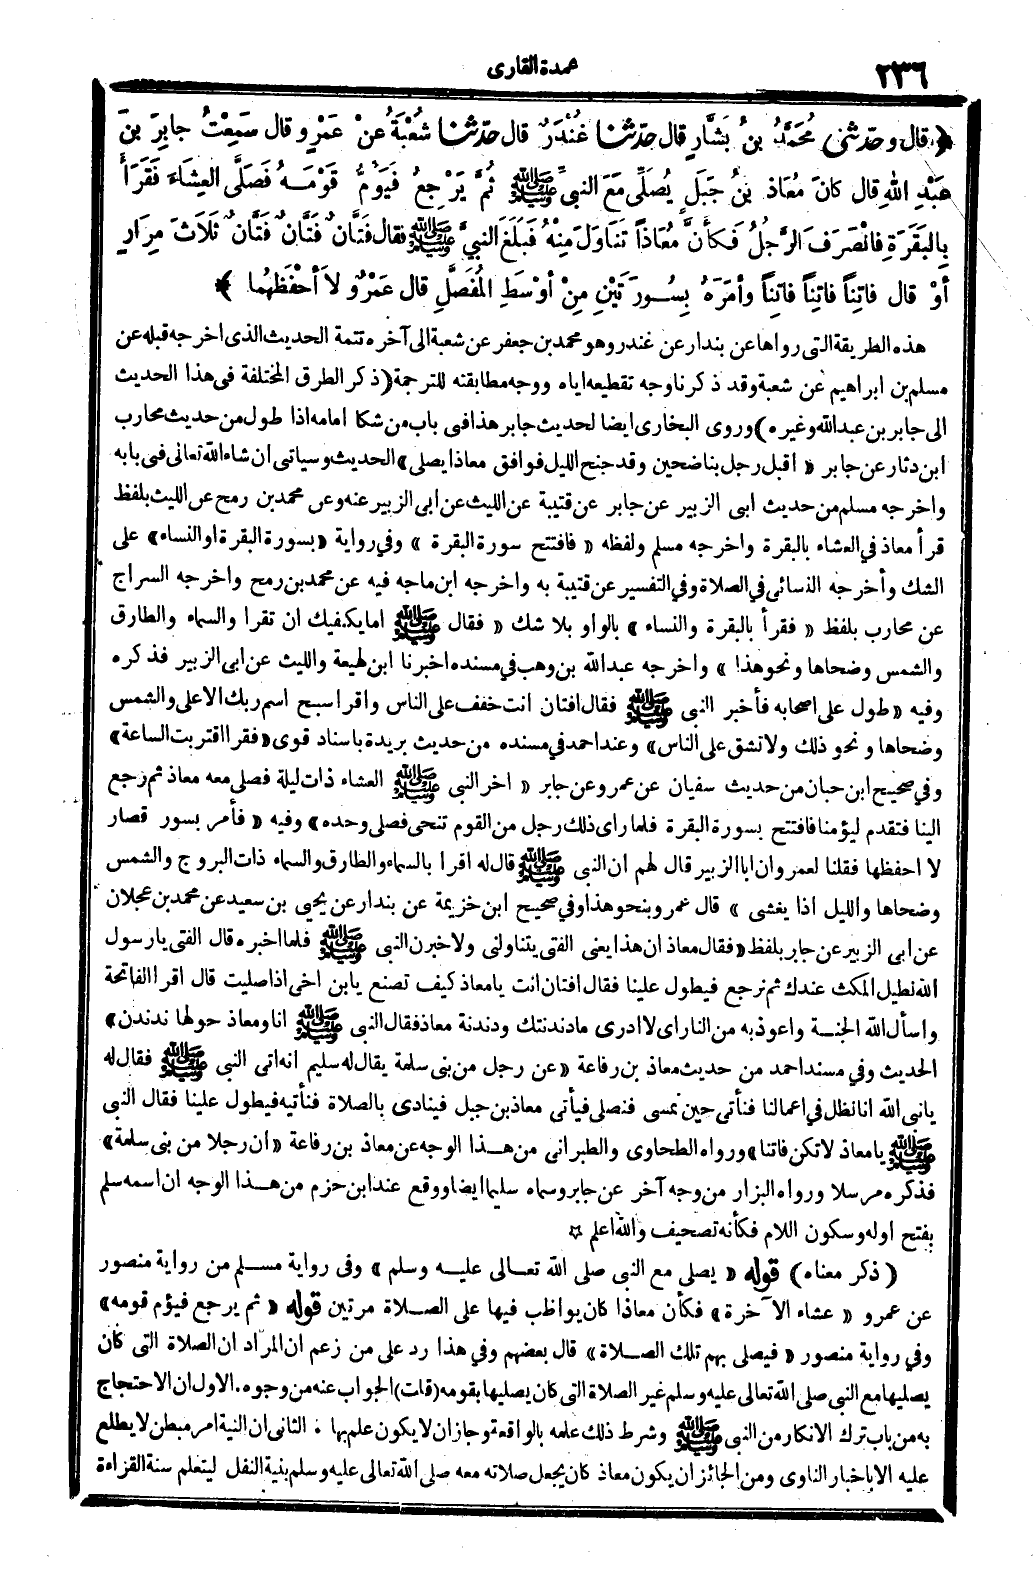 ٢٣٦
عمدة القارى
﴿ قال وحَدَّثَنِي مُحَمَّدُ بنُ بَشَّارٍ قال حدّثنا غُنْدَرٌ قال حدّثنا شُعْبَةُ عنْ عَمْرٍو قال سَمِعْتُ جابِرَ بنَ
عَبْدِ اللهِ قال كانَ مُعَاذ بنُ جَبَلٍ يُصَلِّي مَعَ النبيِّ ﷺ ثُمَّ يَرْجِعُ فَيَوُمُّ قَوْمَهُ فَصَلَّى العِشَاءَ فَقَرَأَ
بِالبَقَرَةِ فانْصَرَفَ الرَّجُلُ فَكأَنَّ مُعَاذاً تَنَاوَلَ مِنْهُ فَبَلَغَ النبيَّ ﷺ فقال فَتَّانٌ فَتَّانٌ فَتَّانٌ ثَلاَثَ مِرَارٍ
أوْ قال فاتِناً فاتِناً فاتِناً وأمَرَهُ بِسُورَتَيْنِ مِنْ أوْسَطِ المُفَصَّلِ قال عَمْرٌو لاَ أحْفَظُهُما ﴾
هذه الطريقة التى رواها عن بندار عن غندر وهو محمد بن جعفر عن شعبة الى آخره تتمة الحديث الذى اخرجه قبله عن
مسلم بن ابراهيم عن شعبة وقد ذكرنا وجه تقطيعه اياه ووجه مطابقته للترجمة (ذكر الطرق المختلفة فى هذا الحديث
الى جابر بن عبدالله وغيره) وروى البخارى ايضا لحديث جابر هذا فى باب من شكا امامه اذا طول من حديث محارب
ابن دثار عن جابر « اقبل رجل بناضحين وقد جنح الليل فوافق معاذا يصلى » الحديث وسياتى ان شاء الله تعالى فى بابه
واخرجه مسلم من حديث ابى الزبير عن جابر عن قتيبة عن الليث عن ابى الزبير عنه وعن محمد بن رمح عن الليث بلفظ
قرأ معاذ في العشاء بالبقرة واخرجه مسلم ولفظه « فافتتح سورة البقرة » وفي رواية « بسورة البقرة او النساء » على
الشك وأخرجه النسائى في الصلاة وفي التفسير عن قتيبة به واخرجه ابن ماجه فيه عن محمد بن رمح واخرجه السراج
عن محارب بلفظ « فقرأ بالبقرة والنساء » بالواو بلا شك « فقال ﷺ اما يكفيك ان تقرا والسماء والطارق
والشمس وضحاها ونحو هذا » واخرجه عبدالله بن وهب في مسنده اخبرنا ابن لهيعة والليث عن ابى الزبير فذكره
وفيه « طول على اصحابه فأخبر النبى ﷺ فقال افتان انت خفف على الناس واقرا سبح اسم ربك الاعلى والشمس
وضحاها ونحو ذلك ولا تشق على الناس » وعند احمد في مسنده من حديث بريدة باسناد قوى « فقرا اقتربت الساعة »
وفي صحيح ابن حبان من حديث سفيان عن عمرو عن جابر « اخر النبى ﷺ العشاء ذات ليلة فصلى معه معاذ ثم رجع
الينا فتقدم ليؤمنا فافتتح بسورة البقرة فلما راى ذلك رجل من القوم تنحى فصلى وحده » وفيه « فأمر بسور قصار
لا احفظها فقلنا لعمرو ان ابا الزبير قال لهم ان النبى ﷺ قال له اقرا بالسماء والطارق والسماء ذات البروج والشمس
وضحاها والليل اذا يغشى » قال عمرو بنحو هذا وفي صحيح ابن خزيمة عن بندار عن يحيى بن سعيد عن محمد بن عجلان
عن ابى الزبير عن جابر بلفظ « فقال معاذ ان هذا يعنى الفتى يتناولنى ولاخبرن النبى ﷺ فلما اخبره قال الفتى يارسول
الله نطيل المكث عندك ثم نرجع فيطول علينا فقال افتان انت يامعاذ كيف تصنع يا ابن اخى اذا صليت قال اقرا الفاتحة
واسأل الله الجنة واعوذ به من النار اى لا ادرى ما دندنتك ودندنة معاذ فقال النبى ﷺ انا ومعاذ حولها ندندن »
الحديث وفي مسند احمد من حديث معاذ بن رفاعة « عن رجل من بنى سلمة يقال له سليم انه اتى النبى ﷺ فقال له
يانبى الله انا نظل في اعمالنا فنأتى حين نمسى فنصلى فيأتى معاذ بن جبل فينادى بالصلاة فنأتيه فيطول علينا فقال النبى
ﷺ يا معاذ لا تكن فاتنا » ورواه الطحاوى والطبرانى من هذا الوجه عن معاذ بن رفاعة « ان رجلا من بنى سلمة »
فذكره مرسلا ورواه البزار من وجه آخر عن جابر وسماه سليما ايضا ووقع عند ابن حزم من هذا الوجه ان اسمه سلم
بفتح اوله وسكون اللام فكأنه تصحيف والله اعلم ☆
(ذكر معناه) قوله « يصلى مع النبى صلى الله تعالى عليه وسلم » وفى رواية مسلم من رواية منصور
عن عمرو « عشاء الآخرة » فكأن معاذا كان يواظب فيها على الصلاة مرتين قوله « ثم يرجع فيؤم قومه »
وفي رواية منصور « فيصلى بهم تلك الصلاة » قال بعضهم وفي هذا رد على من زعم ان المراد ان الصلاة التى كان
يصليها مع النبى صلى الله تعالى عليه وسلم غير الصلاة التى كان يصليها بقومه (قلت) الجواب عنه من وجوه. الاول ان الاحتجاج
به من باب ترك الانكار من النبى ﷺ وشرط ذلك علمه بالواقعة وجاز ان لا يكون علم بها . الثانى ان النية امر مبطن لا يطلع
عليه الا باخبار الناوى ومن الجائز ان يكون معاذ كان يجعل صلاته معه صلى الله تعالى عليه وسلم بنية النفل ليتعلم سنة القراءة